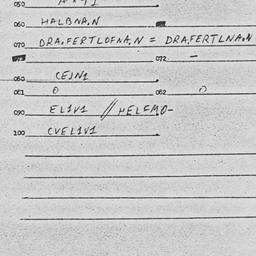 050
060 HALBNA,N
070 DRA,FERTLOFNA,N = DRA,FERTLNA,N
072 -
080 CEJN1
081 0 082 0
090 EL1V1 // HELEMO-
100 CVEL1V1